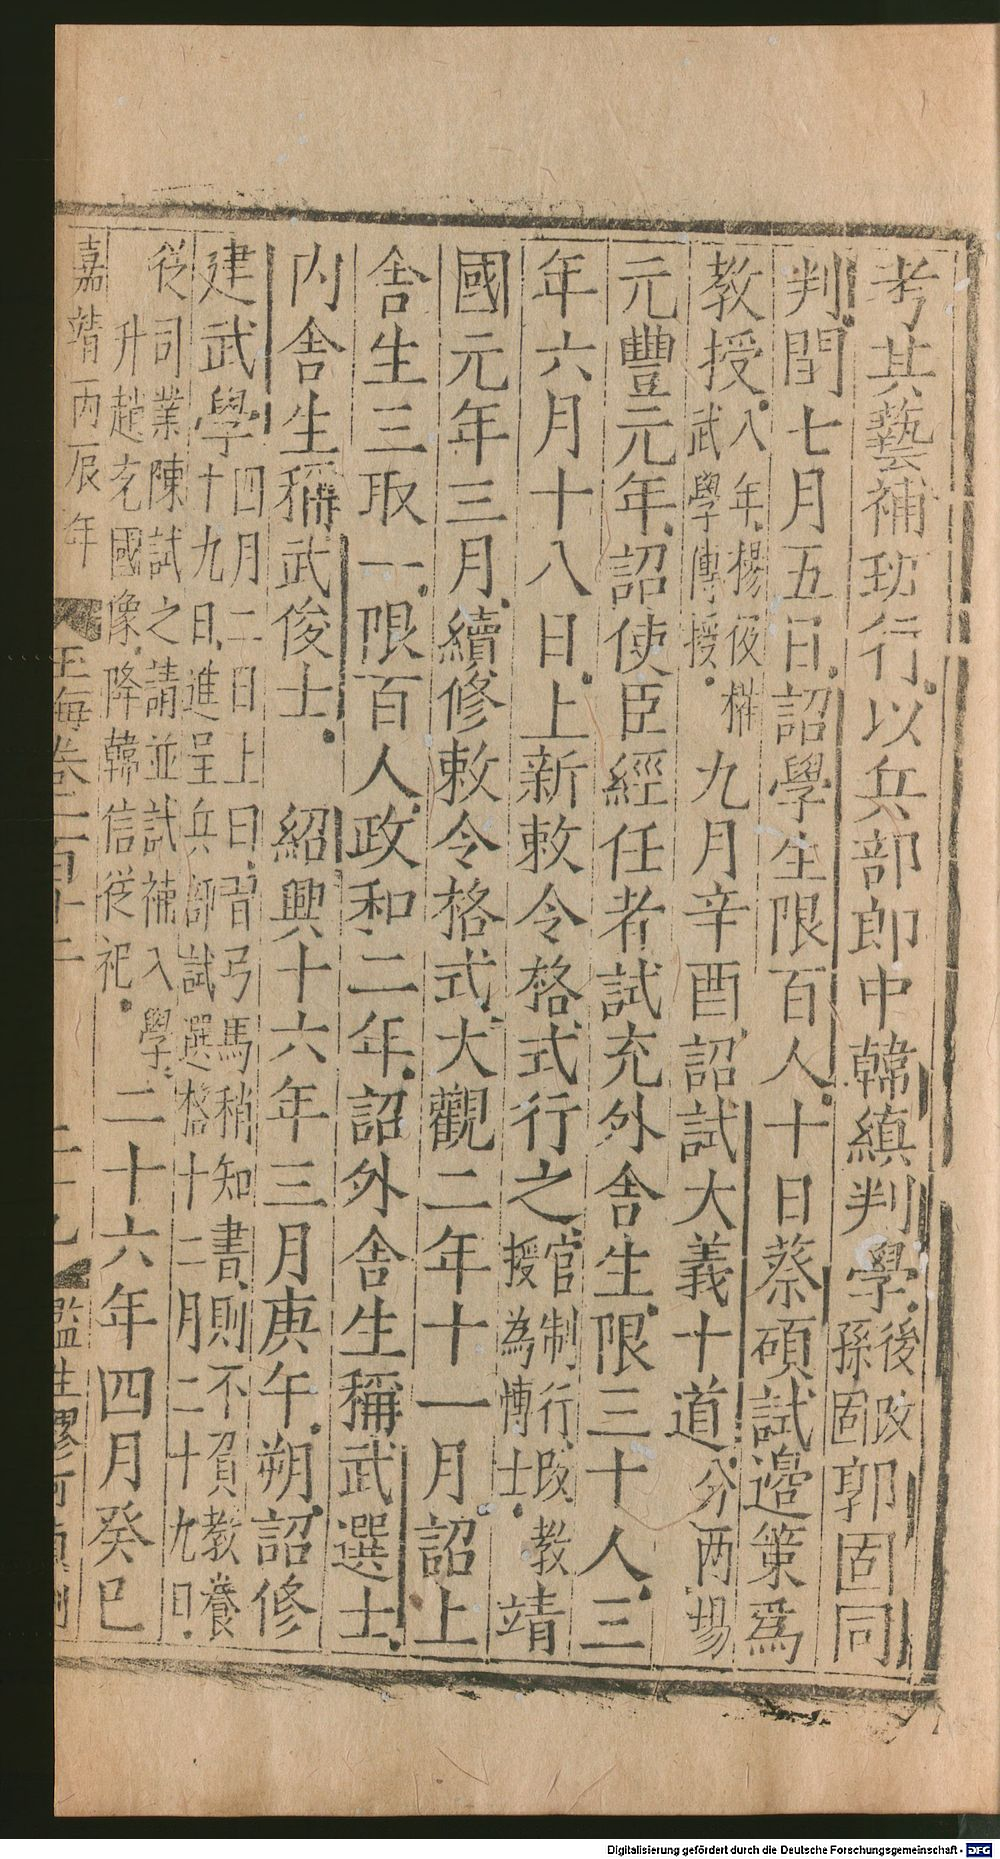 考其藝補班行以兵部郎中韓縝判學後改孫固郭固同
判閏七月五日詔學生限百人十日蔡碩試邊策爲
教授八年楊伋權武學傳授九月辛酉詔試大義十道分兩場
元豐元年詔使臣經任者試充外舍生限三十人三
年六月十八日上新敕令格式行之官制行改教授為博士靖
國元年三月續修敕令格式大觀二年十一月詔上
舍生三取一限百人政和二年詔外舍生稱武選士
內舍生稱武俊士 紹興十六年三月庚午朔詔修
建武學四月二日上曰習弓馬稍知書則不負教養十九日進呈兵師試選格十二月二十九日
從司業陳試之請並試補入學升趙充國像降韓信從祀二十六年四月癸巳
嘉靖丙辰年 玉海卷二百十二 二十九 監生廖 貞刊
Digitalisierung gefördert durch die Deutsche Forschungsgemeinschaft - DFG